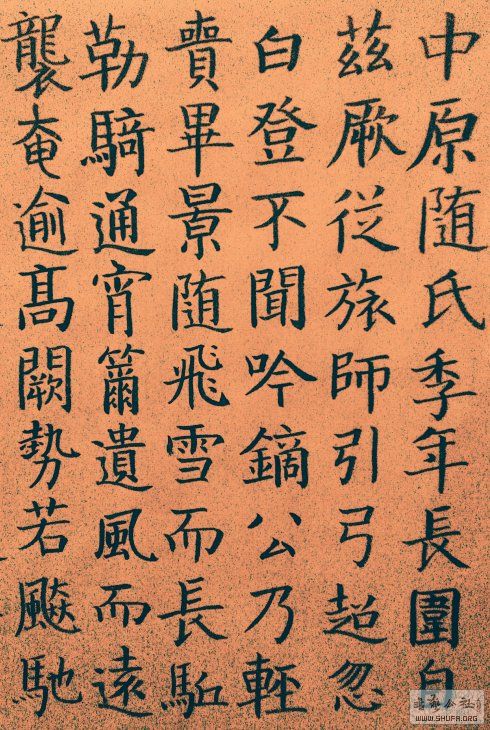 中原随氏季年長圍
茲厥從旅師引弓超忽
白登不聞吟鏑公乃輕
賷畢景随飛雪而長駈
勒騎通宵籋遺風而遠
襲奄逾髙闕勢若飈馳
WWW.SHUFA.ORG